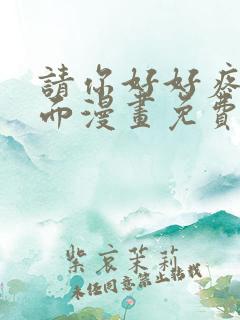 請你好好疼
而漫畫免費
紫哀茉莉
未经同意禁止转载